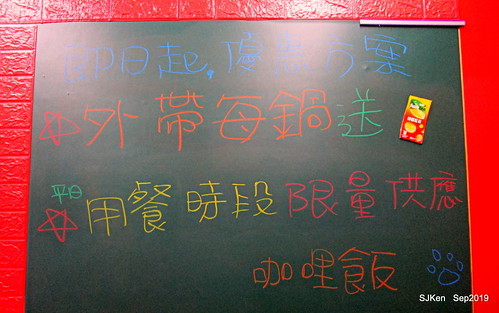 即日起,優惠方案
外帶每鍋送
平日
用餐時段限量供應
咖哩飯
SJKen Sep2019